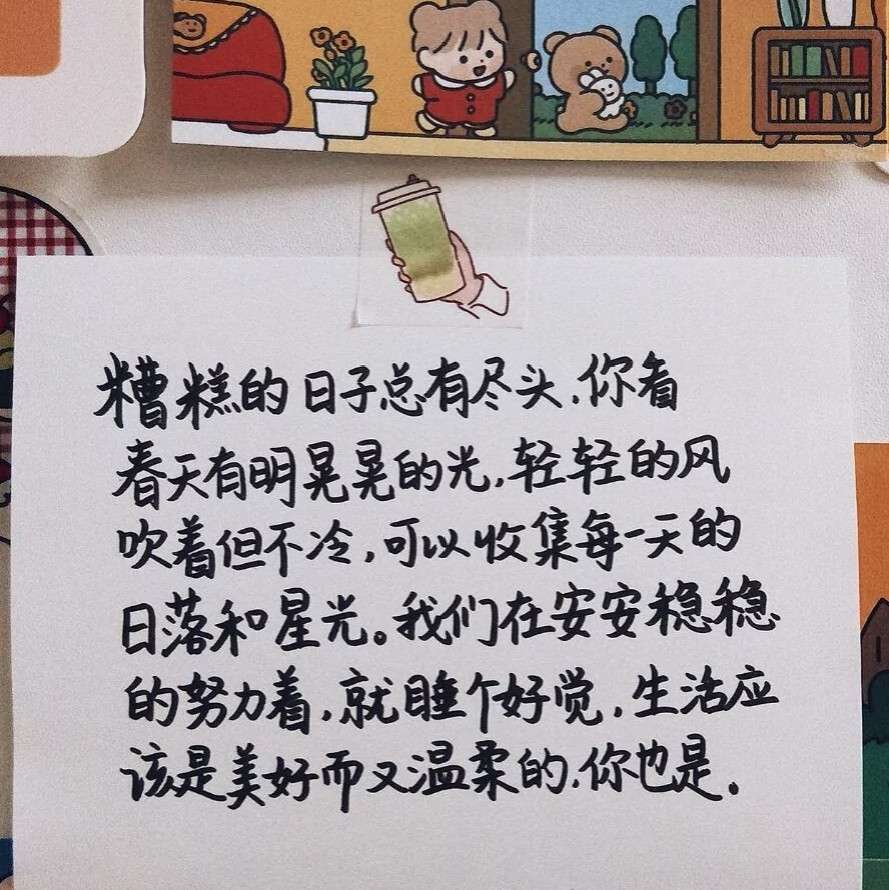 糟糕的日子总有尽头,你看
春天有明晃晃的光,轻轻的风
吹着但不冷,可以收集每一天的
日落和星光。我们在安安稳稳
的努力着,就睡个好觉,生活应
该是美好而又温柔的,你也是.